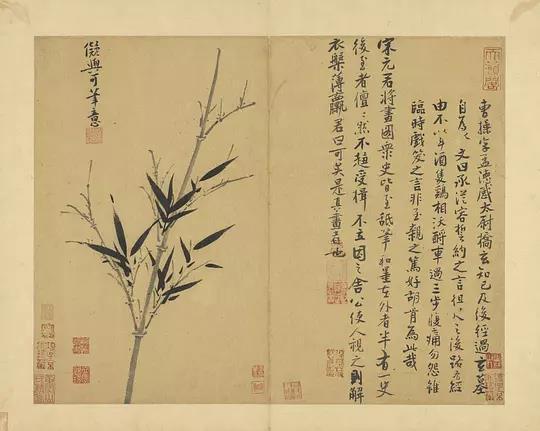 曹操字孟德感太尉橋玄知己及後經過玄墓
自為文曰承從容誓約之言徂之後路有經
由不以斗酒隻鷄相沃酹車過三步腹痛勿怨雖
臨時戲笑之言非至親之篤好胡肯為此哉
宋元君將畫圖眾史皆至舐筆和墨在外者半有一史
後至者儃〻然不趨受揖不立因之舍公使人視之則解
衣槃薄臝君曰可矣是真畫者也
儗與可筆意